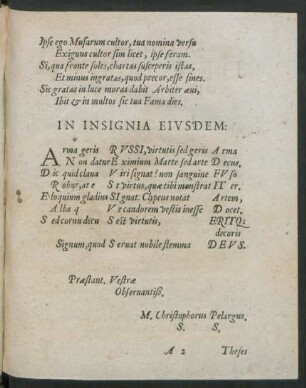 Ipse ego Musarum cultor, tua nomina versu
Exiguus cultor sim licet, ipse feram.
Si, qua fronte soles, chartas susceperis istas,
Et minus ingratas, quod precor, esse sines.
Sic gratas in luce moras dabit Arbiter aevi,
Ibit & in multos sic tua Fama dies.
IN INSIGNIA EIVSDEM:
Arma geris RVSSI, virtutis sed geris Arma
A Non datur Eximium Marte sed arte Decus.
Dic quid clava Viri signat? non sanguine FVso
Robur, at e St virtus, quae tibi monstrat ITer.
Eloquium gladius SIgnat. Clypeus notat Artem,
Alba q Ve candorem vestis inesse Docet.
Sed cornu decu S est virtutis, ERITQ;
decoris
Signum, quod Servat nobile stemma DEVS.
Praestant. Vestrae
Observantiss.
M. Christophorus Pelargus.
S. S.
A 2 Theses